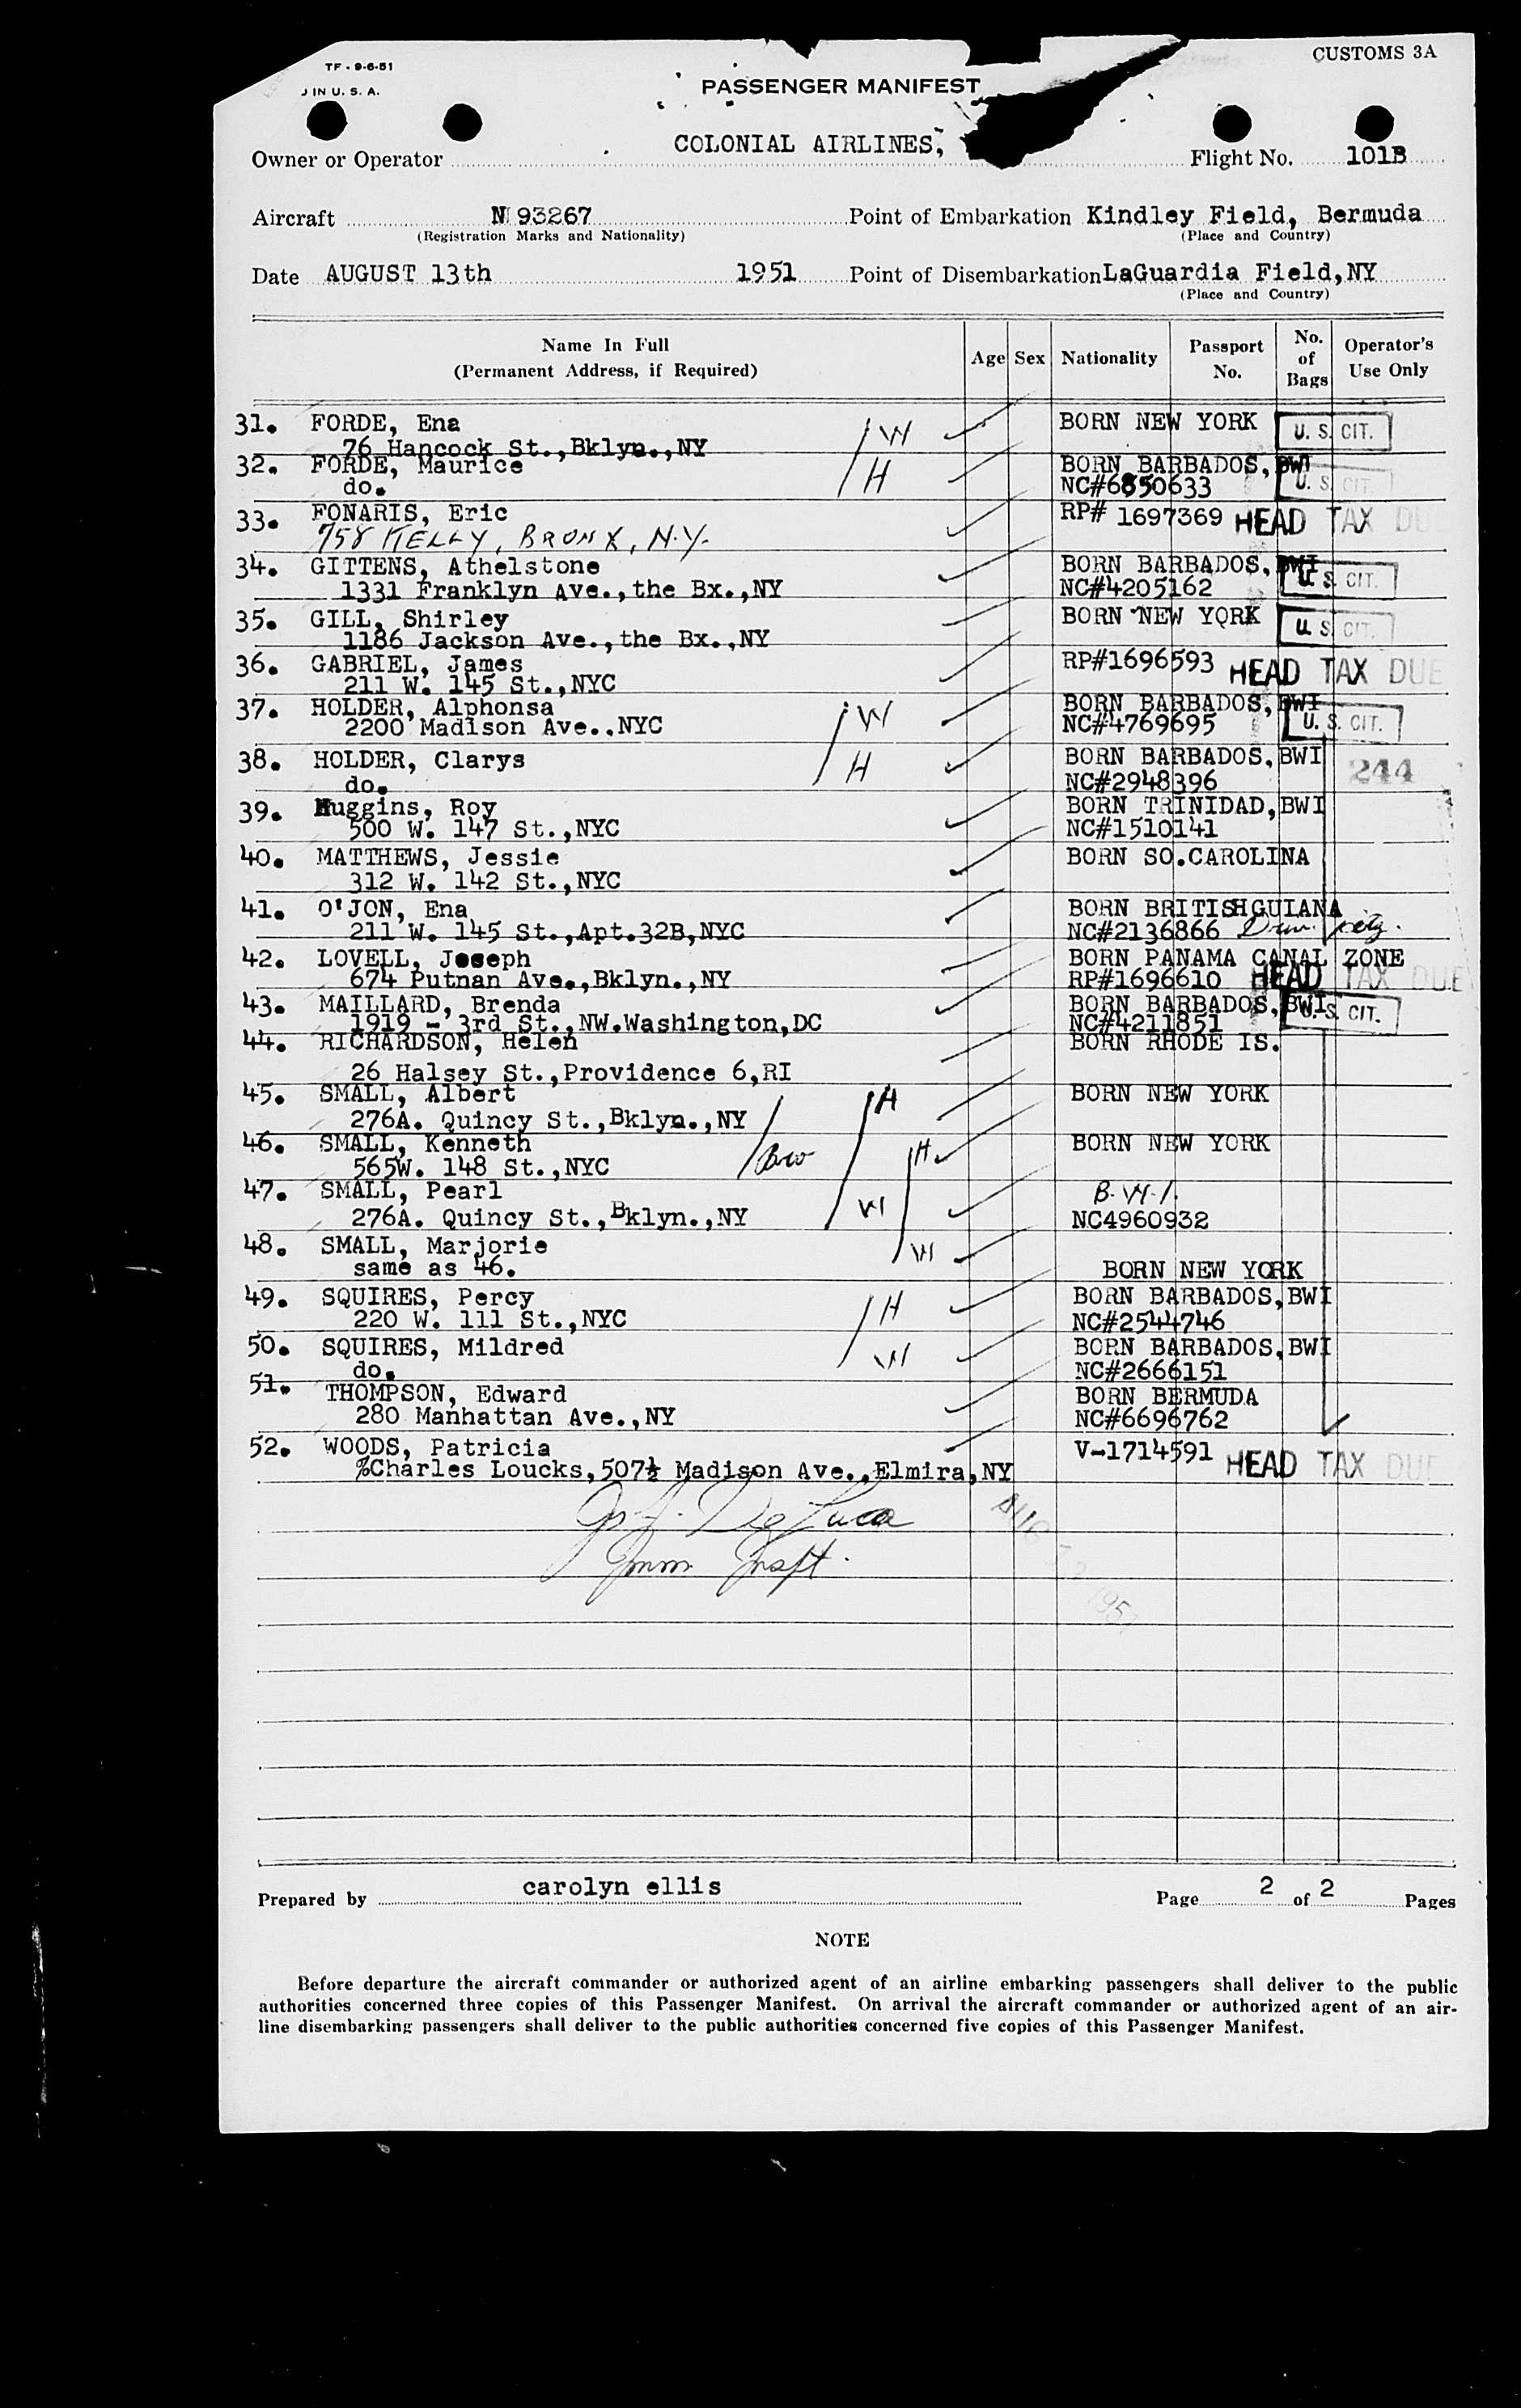 TF - 9-6-51
CUSTOMS 3A
IN U. S. A.
PASSENGER MANIFEST
COLONIAL AIRLINES,
Owner or Operator
Flight No. 101B
Aircraft N 93267 Point of Embarkation Kindley Field, Bermuda
(Registration Marks and Nationality) (Place and Country)
Date AUGUST 13th 1951 Point of Disembarkation LaGuardia Field, NY
(Place and Country)
Name In Full
(Permanent Address, if Required)
Age Sex Nationality Passport No. No. of Bags Operator's Use Only
31. FORDE, Ena W BORN NEW YORK U. S. CIT.
76 Hancock St., Bklyn., NY
32. FORDE, Maurice H BORN BARBADOS, BWI
do. NC#6850633 U. S. CIT.
33. FONARIS, Eric RP# 1697369 HEAD TAX DU
758 KELLY, BRONX, N.Y.
34. GITTENS, Athelstone BORN BARBADOS, BWI
1331 Franklyn Ave., the Bx., NY NC#4205162 U. S. CIT.
35. GILL, Shirley BORN NEW YORK U. S. CIT.
1186 Jackson Ave., the Bx., NY
36. GABRIEL, James RP#1696593 HEAD TAX DUE
211 W. 145 St., NYC
37. HOLDER, Alphonsa W BORN BARBADOS, BWI
2200 Madison Ave., NYC NC#4769695 U. S. CIT.
38. HOLDER, Clarys H BORN BARBADOS, BWI 244
do. NC#2948396
39. Huggins, Roy BORN TRINIDAD, BWI
500 W. 147 St., NYC NC#1510141
40. MATTHEWS, Jessie BORN SO.CAROLINA
312 W. 142 St., NYC
41. O'JON, Ena BORN BRITISH GUIANA
211 W. 145 St., Apt.32B, NYC NC#2136866
42. LOVELL, Joseph BORN PANAMA CANAL ZONE
674 Putnan Ave., Bklyn., NY RP#1696610 HEAD TAX DUE
43. MAILLARD, Brenda BORN BARBADOS, BWI
1919 - 3rd St., NW.Washington, DC NC#4211851 U. S. CIT.
44. RICHARDSON, Helen BORN RHODE IS.
26 Halsey St., Providence 6, RI
45. SMALL, Albert H BORN NEW YORK
276A. Quincy St., Bklyn., NY
46. SMALL, Kenneth H BORN NEW YORK
565W. 148 St., NYC Bro
47. SMALL, Pearl W B.W.I.
276A. Quincy St., Bklyn., NY NC4960932
48. SMALL, Marjorie W
same as 46. BORN NEW YORK
49. SQUIRES, Percy H BORN BARBADOS, BWI
220 W. 111 St., NYC NC#2544746
50. SQUIRES, Mildred W BORN BARBADOS, BWI
do. NC#2666151
51. THOMPSON, Edward BORN BERMUDA
280 Manhattan Ave., NY NC#6696762
52. WOODS, Patricia V-1714591 HEAD TAX DUE
%Charles Loucks, 507½ Madison Ave., Elmira, NY
De Luca
Imm Inspt.
Prepared by carolyn ellis Page 2 of 2 Pages
NOTE
Before departure the aircraft commander or authorized agent of an airline embarking passengers shall deliver to the public
authorities concerned three copies of this Passenger Manifest. On arrival the aircraft commander or authorized agent of an air-
line disembarking passengers shall deliver to the public authorities concerned five copies of this Passenger Manifest.